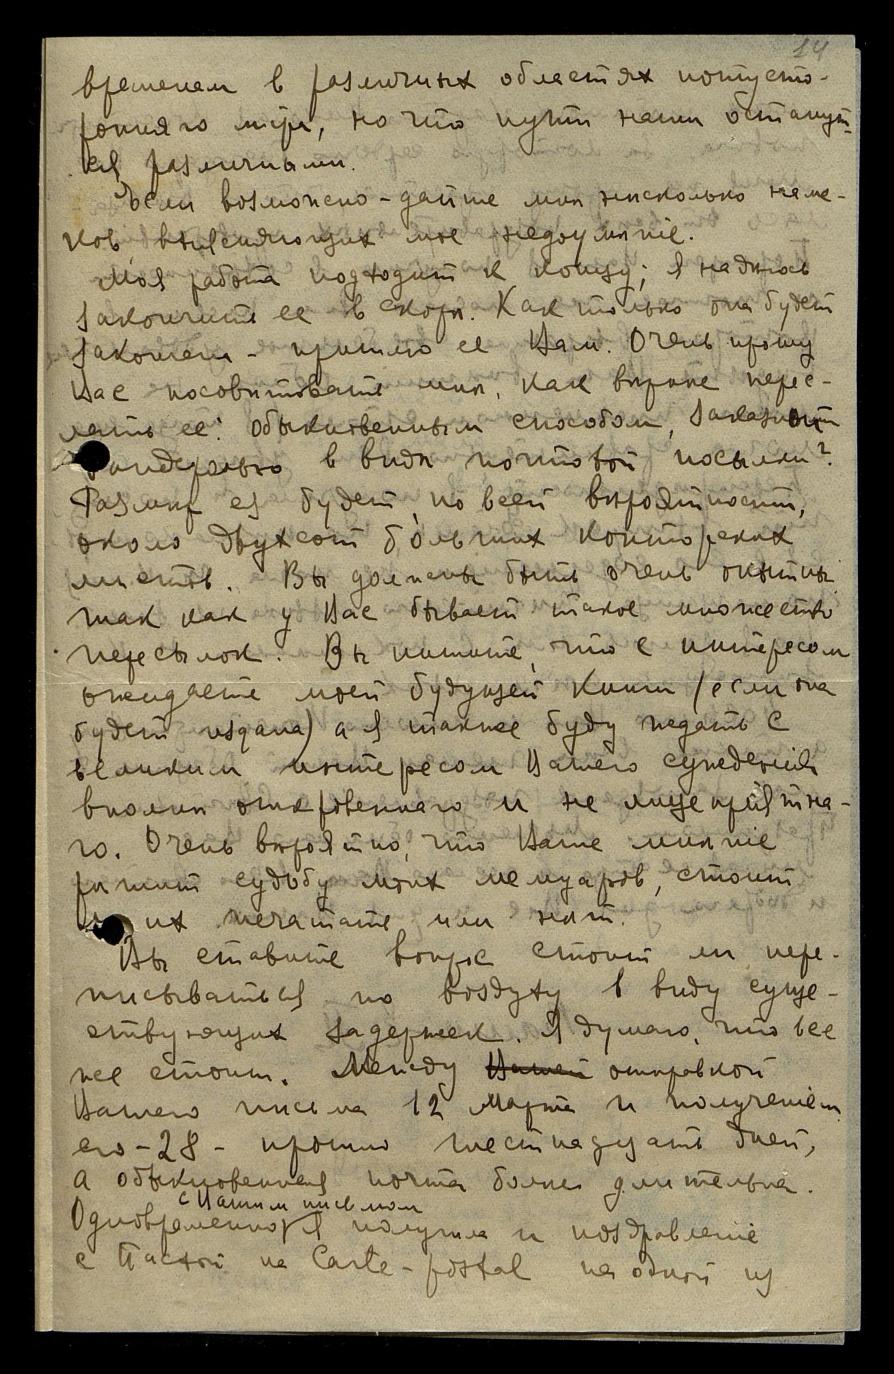 14
временам в различных областях потусто-
ронняго мiра, но что пути наши останут-
ся различными.
Если возможно - дайте мнѣ нѣсколько наме-
ков выясняющих мое недоумѣнiе.
Моя работа подходит к концу; я надѣюсь
закончить ее в скорѣ. Как только она будет
закончена - пришлю ее Вам. Очень прошу
Вас посовѣтовать мнѣ, как вѣрнѣе перес-
лать ее: обыкновенным способом, заказной
бандеролью в видѣ почтовой посылки?
Размѣр ея будет, по всей вѣроятности,
около двухсот больших конторских
листов. Вы должны быть очень опытны
так как у Вас бывает такое множество
пересылок. Вы пишите, что с интересом
ожидаете моей будущей книги (если она
будет издана) а я также буду ждать с
великим интересом Вашего сужденiя
вполнѣ откровеннаго и не лицепрiятна-
го. Очень вѣроятно, что Ваше мнѣнiе
рѣшит судьбу моих мемуаров, стоит
ли их печатать или нѣт.
Вы ставите вопрос стоит ли пере-
писываться по воздуху в виду суще-
ствующих задержек. Я думаю, что все
же стоит. Между Вашей отправкой
Вашего письма 12 Марта и полученiем
его - 28 - прошло шестнадцать дней,
а обыкновенная почта болѣе длительна.
с Вашим письмом
Одновременно я получила и поздравленiе
с Пасхой на Carte-postal на одной из